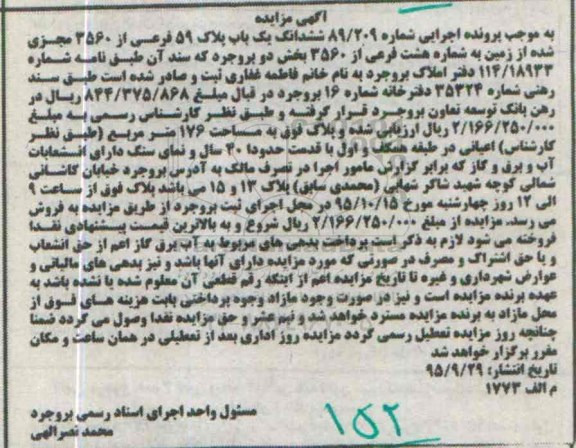 آگهی مزایده
به موجب پرونده اجرایی شماره ۸۹/۲۰۹ ششدانگ یک باب پلاک ۵۹ فرعی از ۳۵۶۰ مجزی
شده از زمین به شماره هشت فرعی از ۳۵۶۰ بخش دو بروجرد که سند آن طبق نامه شماره
۱۱۴/۱۸۹۳۳ دفتر املاک بروجرد به نام خانم فاطمه غفاری ثبت و صادر شده است طبق سند
رهنی شماره ۳۵۳۲۴ دفترخانه شماره ۱۶ بروجرد در قبال مبلغ ۸۴۴/۳۷۵/۸۶۸ ریال در
رهن بانک توسعه تعاون بروجرد قرار گرفته و طبق نظر کارشناس رسمی به مبلغ
۲/۱۶۶/۲۵۰/۰۰۰ ریال ارزیابی شده و پلاک فوق به مساحت ۱۷۶ متر مربع (طبق نظر
کارشناس) اعیانی در طبقه همکف و اول با قدمت حدودا ۳۰ سال و نمای سنگ دارای انشعابات
آب و برق و گاز که برابر گزارش مامور اجرا در تصرف مالک به آدرس بروجرد خیابان کاشانی
شمالی کوچه شهید شاکر شهابی (محمدی سابق) پلاک ۱۳ و ۱۵ می باشد پلاک فوق از ساعت ۹
الی ۱۲ روز چهارشنبه مورخ ۹۵/۱۰/۱۵ در محل اجرای ثبت بروجرد از طریق مزایده به فروش
می رسد. مزایده از مبلغ ۲/۱۶۶/۲۵۰/۰۰۰ ریال شروع و به بالاترین قیمت پیشنهادی نقدا
فروخته می شود لازم به ذکر است پرداخت بدهی های مربوط به آب برق گاز اعم از حق انشعاب
و یا حق اشتراک و مصرف در صورتی که مورد مزایده دارای آنها باشد و نیز بدهی های مالیاتی و
عوارض شهرداری و غیره تا تاریخ مزایده اعم از اینکه رقم قطعی آن معلوم شده یا نشده باشد به
عهده برنده مزایده است و نیز در صورت وجود مازاد وجوه پرداختی بابت هزینه های فوق از
محل مازاد به برنده مزایده مسترد خواهد شد و نیم عشر و حق مزایده نقدا وصول می گردد ضمنا
چنانچه روز مزایده تعطیل رسمی گردد مزایده روز اداری بعد از تعطیلی در همان ساعت و مکان
مقرر برگزار خواهد شد
تاریخ انتشار: ۹۵/۹/۲۹
م الف ۱۷۷۳
مسئول واحد اجرای اسناد رسمی بروجرد
محمد نصرالهی
۱۵۲